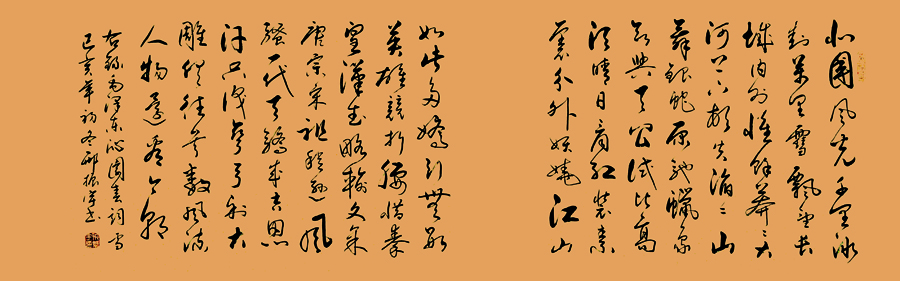 北國风光千里冰
封万里雪飘望长
城内外惟余莽々大
河上下顿失滔々山
舞银蛇原驰蜡象
欲与天公试比高
须晴日看红装素
裹分外妖娆江山
如此多娇引無数
英雄競折腰惜秦
皇漢武略输文采
唐宗宋祖稍逊风
骚一代天骄成吉思
汗只识弯弓射大
雕俱往矣數风流
人物還看今朝
右録毛泽东沁园春词雪
己亥年初冬